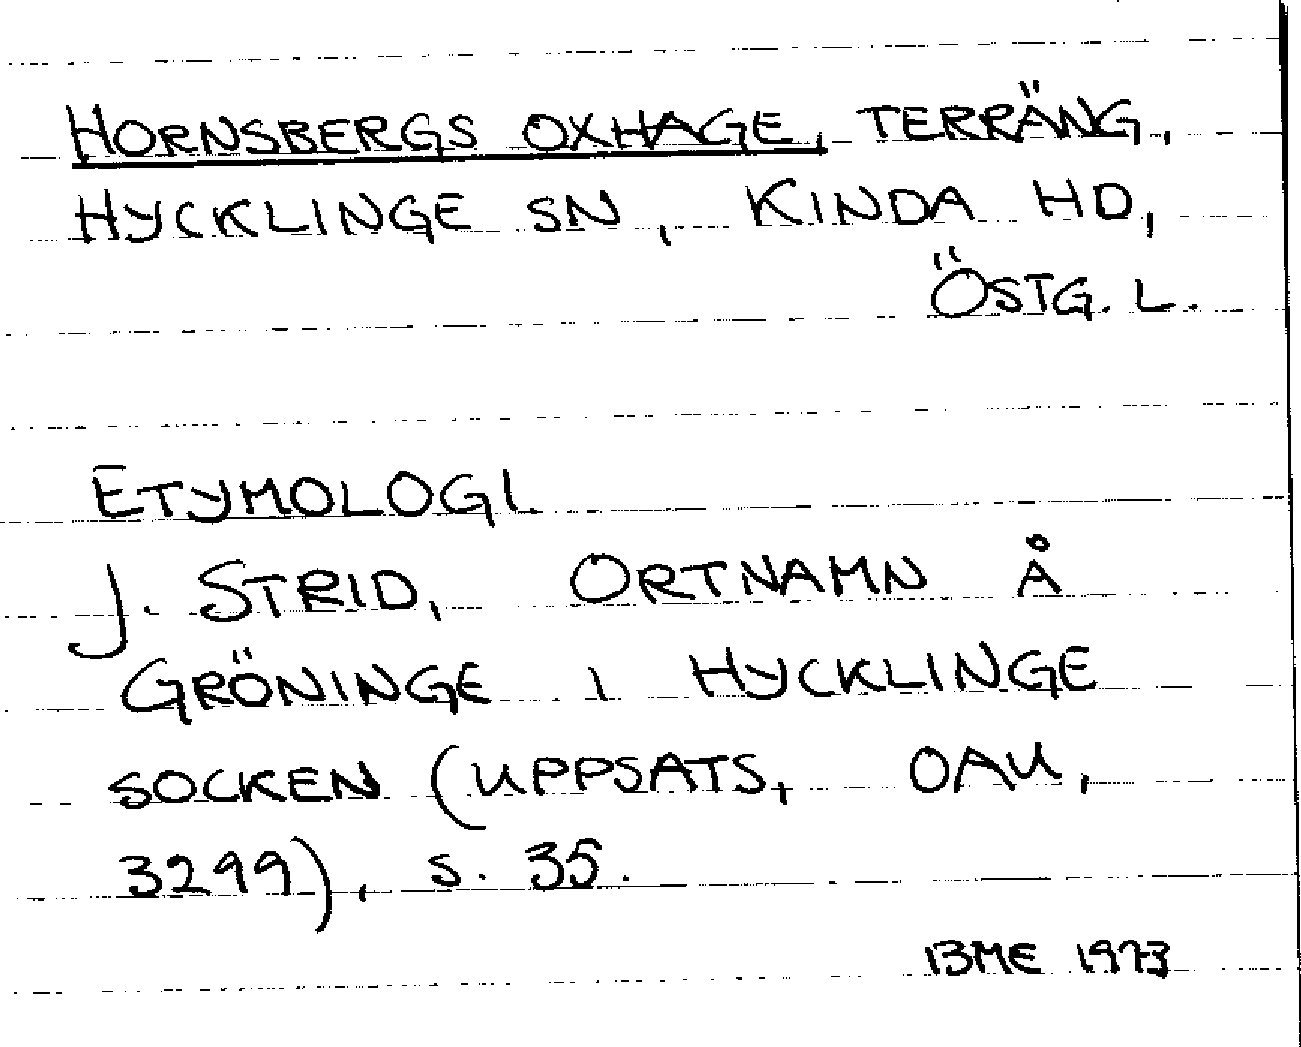 HORNSBERGS OXHAGE, TERRÄNG,
HYCKLINGE SN, KINDA HD,
ÖSTG. L.
ETYMOLOGI.
J. STRID, ORTNAMN Å
GRÖNINGE I HYCKLINGE
SOCKEN (UPPSATS, OAU,
3299), S. 35.
BME 1973